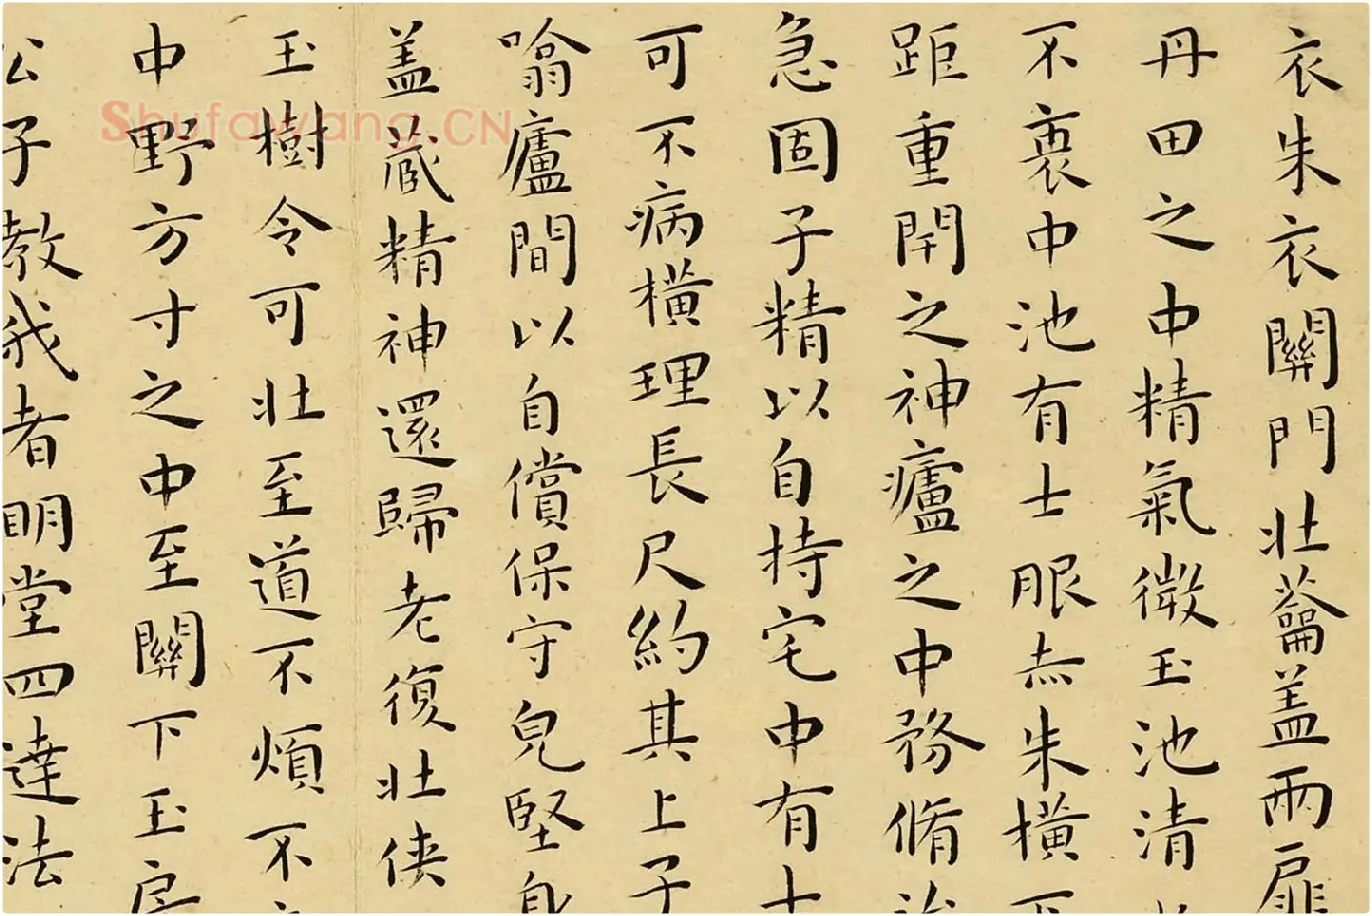 衣朱衣關門壯蘥盖兩扉
丹田之中精氣微玉池清
不衰中池有士服赤朱橫下
距重閞之神廬之中務脩治
急固子精以自持宅中有士
可不病橫理長尺約其上子
噏廬間以自償保守皃堅身
盖蔵精神還歸老復壯俠
玉樹令可壯至道不煩不
中野方寸之中至關下玉房
公子教我者明堂四達法
Shufawang.CN